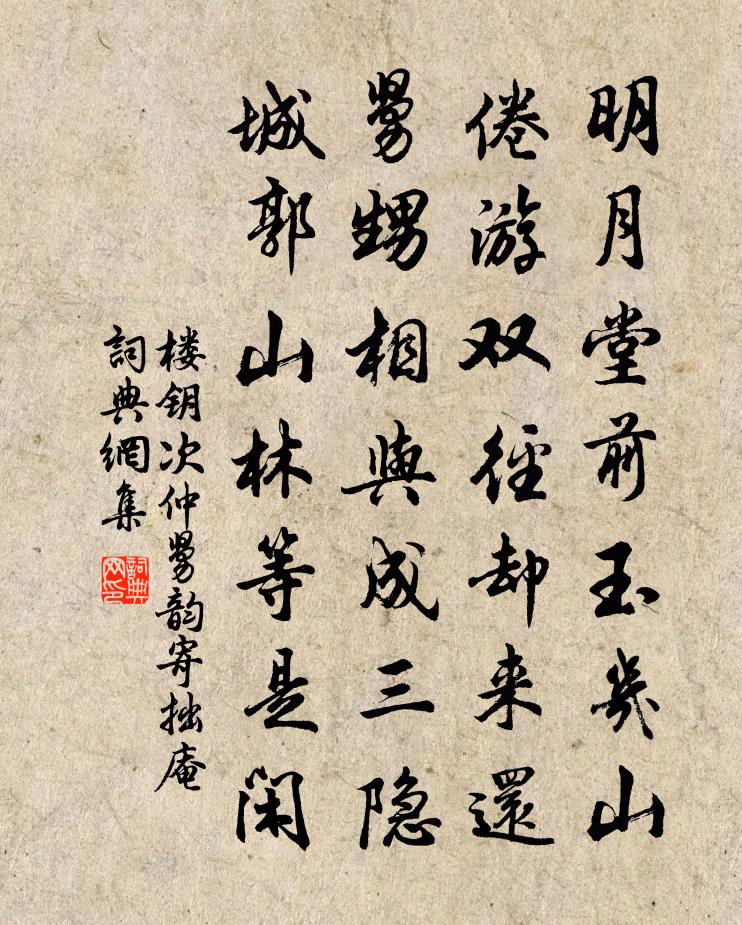 明月堂前玉幾山
倦游双徑却来還
舅甥相與成三隐
城郭山林等是闲
楼钥次仲舅韵寄拙庵
詞典網集
詞典网印